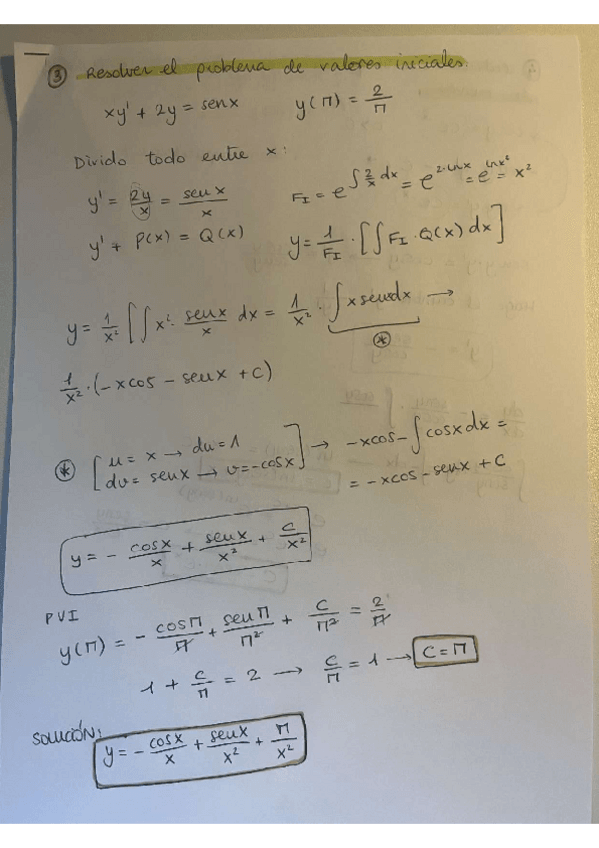 ③ Resolver el problema de valores iniciales.
xy' + 2y = senx    y(π) = 2/π
Divido todo entre x:
y' = 2y/x = senx/x    F_I = e^(∫ 2/x dx) = e^(2·lnx) = e^(lnx²) = x²
y' + P(x) = Q(x)    y = 1/F_I · [∫ F_I · Q(x) dx]
y = 1/x² [∫ x² · senx/x dx = 1/x² · ∫ x senx dx →
(*)
1/x² · (-xcos - senx + C)
(*) [u = x → du = 1    dv = senx → v = -cosx] → -xcos - ∫ cosx dx =
= -xcos - senx + C
y = - cosx/x + senx/x² + C/x²
PVI
y(π) = - cosπ/π + senπ/π² + C/π² = 2/π
1 + C/π = 2 → C/π = 1 → C = π
SOLUCIÓN:
y = - cosx/x + senx/x² + π/x²